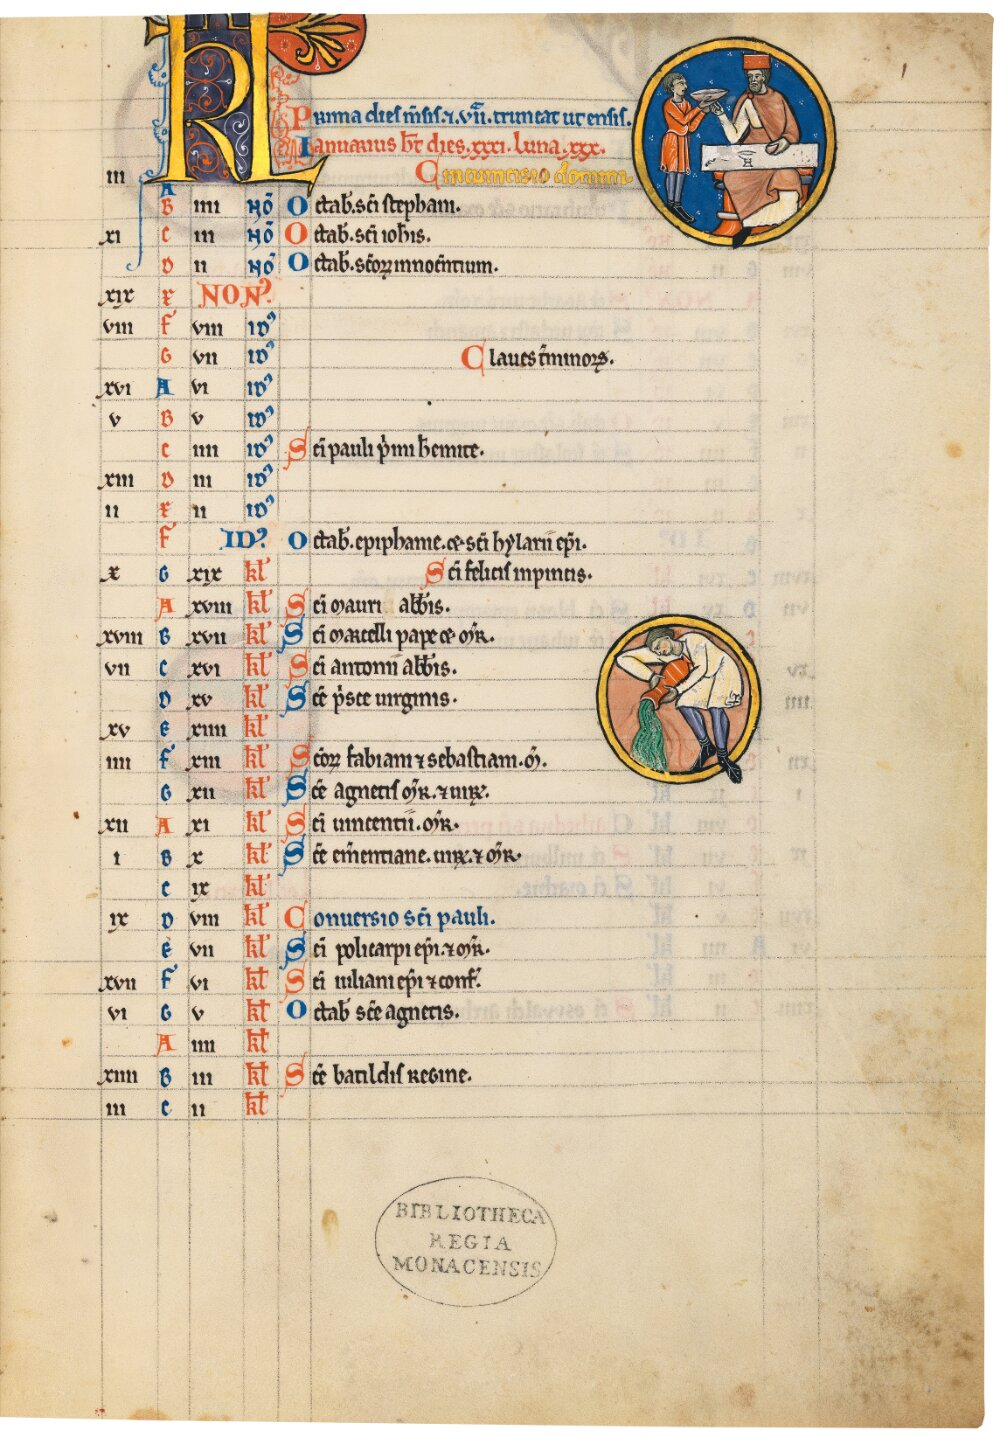 KL
Prima dies m̄sis ⁊ vii. truncat ut ensis.
Ianuarius hꝉ dies. xxxi. luna. xxx.
iii A Circumcisio domini.
B iiii Nō Octab̄. sc̄i stephani.
xi C iii Nō Octab̄. sc̄i ioh̄is.
D ii Nō Octab̄. sc̄oꝝ innocentium.
xix E NON᾽.
viii F viii id᾽
G vii id᾽ Claues t̄minoꝝ.
xvi A vi id᾽
v B v id᾽
C iiii id᾽ Sc̄i pauli p̄mi h̄emite.
xiii D iii id᾽
ii E ii id᾽
F ID᾽ Octab̄. epiphanie. ⁊ sc̄i hylarii ep̄i.
x G xix kl᾽ Sc̄i felicis inpincis.
A xviii kl᾽ Sc̄i mauri abb̄is.
xviii B xvii kl᾽ Sc̄i marcelli pape ⁊ mr̄.
vii C xvi kl᾽ Sc̄i antonii abb̄is.
D xv kl᾽ Sc̄e p̄sce uirginis.
xv E xiiii kl᾽
iiii F xiii kl᾽ Sc̄oꝝ fabiani ⁊ sebastiani. m̄.
G xii kl᾽ Sc̄e agnetis mr̄. ⁊ uirḡ.
xii A xi kl᾽ Sc̄i uincentii. mr̄.
i B x kl᾽ Sc̄e em̄entiane. uirḡ. ⁊ mr̄.
C ix kl᾽
ix D viii kl᾽ Conuersio sc̄i pauli.
E vii kl᾽ Sc̄i policarpi ep̄i. ⁊ mr̄.
xvii F vi kl᾽ Sc̄i iuliani ep̄i ⁊ conf̄.
vi G v kl᾽ Octab̄ sc̄e agnetis.
A iiii kl᾽
xiiii B iii kl᾽ Sc̄e batildis regine.
iii C ii kl᾽
BIBLIOTHECA
REGIA
MONACENSIS